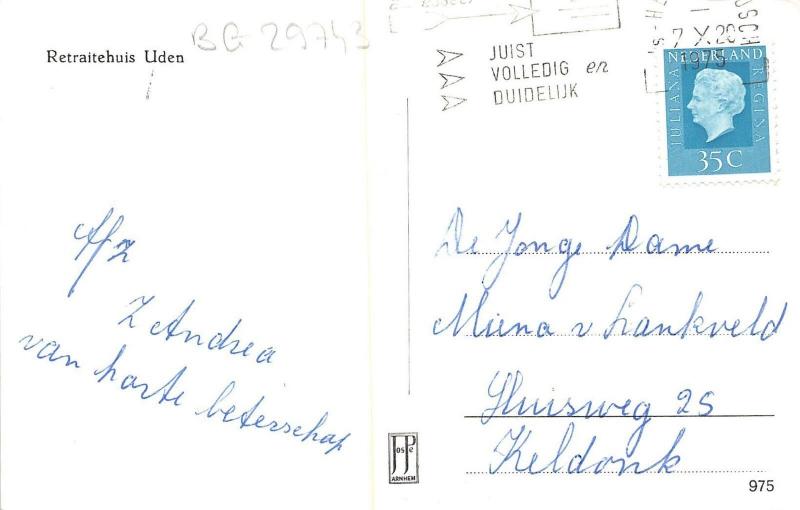 BG 29743
Retraitehuis Uden
JUIST
VOLLEDIG en
DUIDELIJK
7 X 20
1975
NEDERLAND
JULIANA
REGINA
35C
Afz
Z Andrea
van harte beterschap
De Jonge Dame
Miena v Lankveld
Sluisweg 25
Keldonk
JosPe
ARNHEM
975